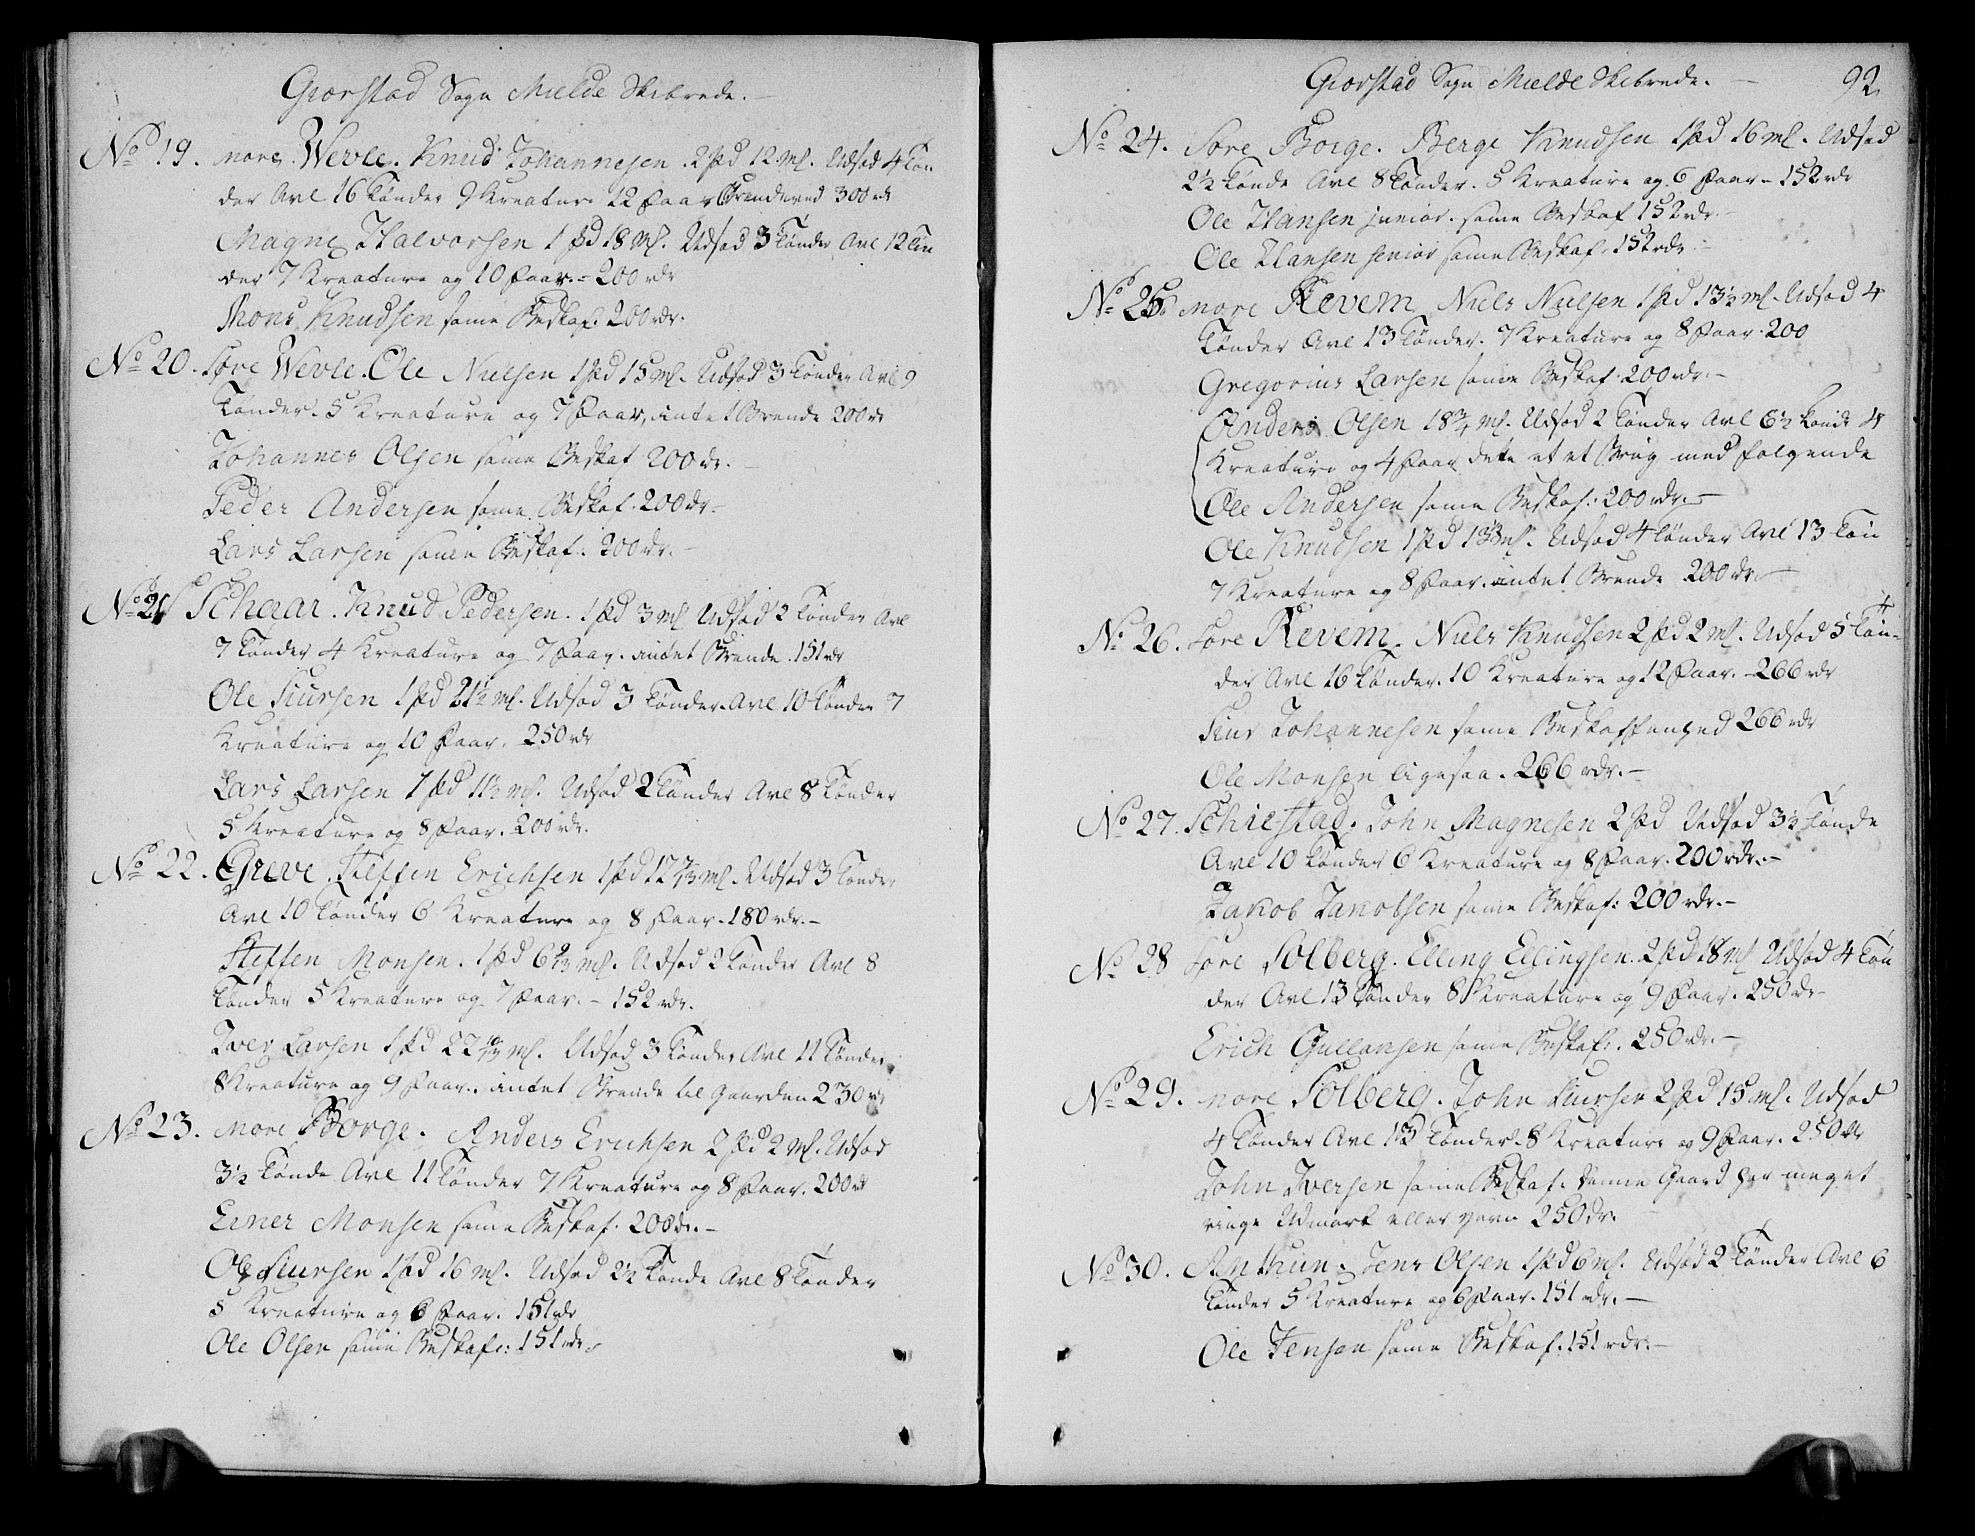 Giorstad Sogn Mielde Skibrede. –
No 19. nore Wevle. Knud Johannesen 2 spd 12 ml. Udsæd 4 Tön
der Avl 16 Tönder 9 Kreature 12 Faar Brendeved 300 rdr
Magne Halvorsen 1 spd 18 ml. Udsæd 3 Tönder Avl 12 Tön
der 7 Kreature og 10 Faar. – 200 rdr
Mons Knudsen same Beskaf: 200 rdr.
No 20. Söre Wevle. Ole Nielsen 1 spd 15 ml. Udsæd 3 Tönder Avl 9
Tönder. 5 Kreature og 7 Faar, intet Brende 200 rdr
Johannes Olsen same Beskaf 200 dr. –
Peder Andersen same Beskaf. 200 dr –
Lars Larsen same Beskaf. 200 dr. –
No 21 Schaar. Knud Pedersen. 1 spd 3 ml Udsæd 2 Tönder Avl
7 Tönder 4 Kreature og 7 Faar. intet Brende. 151 rdr
Ole Siursen 1 spd 21½ ml. Udsæd 3 Tönder. Avl 10 Tönder 7
Kreature og 10 Faar. 250 rdr
Lars Larsen 1 spd 1½ ml. Udsæd 2 Tönder Avl 8 Tönder
5 Kreature og 8 Faar. 200 rdr.
No 22. Greve. Steffen Erichsen 1 spd 12 ml. Udsæd 3 Tönder
Avl 10 Tönder 6 Kreature og 8 Faar. 180 rdr. –
Steffen Monsen. 1 spd 6 ml. Udsæd 2 Tönder Avl 8
Tönder 5 Kreature og 7 Faar. – 152 rdr.
Iver Larsen 1 spd 22 ml. Udsæd 3 Tönder Avl 11 Tönder
8 Kreature og 9 Faar. intet Brende til Gaarden 230 rdr
No 23. nore Borge. Anders Erichsen 2 spd 2 ml. Udsæd
3½ Tönde Avl 11 Tönder 7 Kreature og 8 Faar. 200 rdr
Einer Monsen same Beskaf: 200 dr. –
Ole Siursen 1 spd 16 ml. Udsæd 2½ Tönde Avl 8 Tönder
5 Kreature og 6 Faar. 151 rdr
Ole Olsen same Beskaf: 151 rdr.
Giorstad Sogn Mielde Skibrede. – 92
No 24. Söre Borge. Berge Knudsen 1 spd 16 ml. Udsæd
2½ Tönde Avl 8 Tönder. 5 Kreature og 6 Faar – 152 rdr
Ole Hansen junior. same Beskaf 152 rdr. –
Ole Hansen senior same Beskaf. 152 rdr –
No 25 nore Revem Niels Nielsen 1 spd 13½ ml. Udsæd 4
Tönder Avl 13 Tönder. 7 Kreature og 8 Faar. 200
Gregorius Larsen same Beskaf. 200 rdr. –
Anders Olsen 18¾ ml. Udsæd 2 Tönder Avl 6½ Tönde 4
Kreature og 4 Faar dete et et Brug med følgende
Ole Andersen same Beskaf: 200 rdr. –
Ole Knudsen 1 spd 13½ ml. Udsæd 4 Tönder Avl 13 Tön
7 Kreature og 8 Faar. intet Brende 200 dr. –
No 26. Söre Revem. Niels Knudsen 2 spd 2 ml. Udsæd 5 Tön-
der Avl 16 Tönder. 10 Kreature og 12 Faar. – 266 rdr
Siur Johannesen same Beskaffenhed 266 rdr
Ole Monsen ligesaa. 266 rdr. –
No 27. Schiestad. John Magnesen 2 spd Udsæd 3½ Tönde
Avl 10 Tönder 6 Kreature og 8 Faar. 200 rdr. –
Jakob Jakobsen same Beskaf: 200 rdr. –
No 28 Söre Solberg. Elling Ellingsen. 2 spd 18 ml Udsæd 4 Tön
der Avl 13 Tönder 8 Kreature og 9 Faar. 250 dr –
Erich Gullansen same Beskaf. 250 rdr. –
No 29. nore Solberg. John Siursen 2 spd 15 ml. Udsæd
4 Tönder Avl 13 Tönder. 8 Kreature og 9 Faar. 250 dr
John Iversen same Beskaf. denne Gaard har meget
ringe Udmark eller 250 dr.
No 30. Arnthun. Jens Olsen 1 spd 6 ml. Udsæd 2 Tönder Avl 6
Tönder 5 Kreature og 6 Faar. 151 rdr. –
Ole Jensen same Beskaf. 151 rdr. –